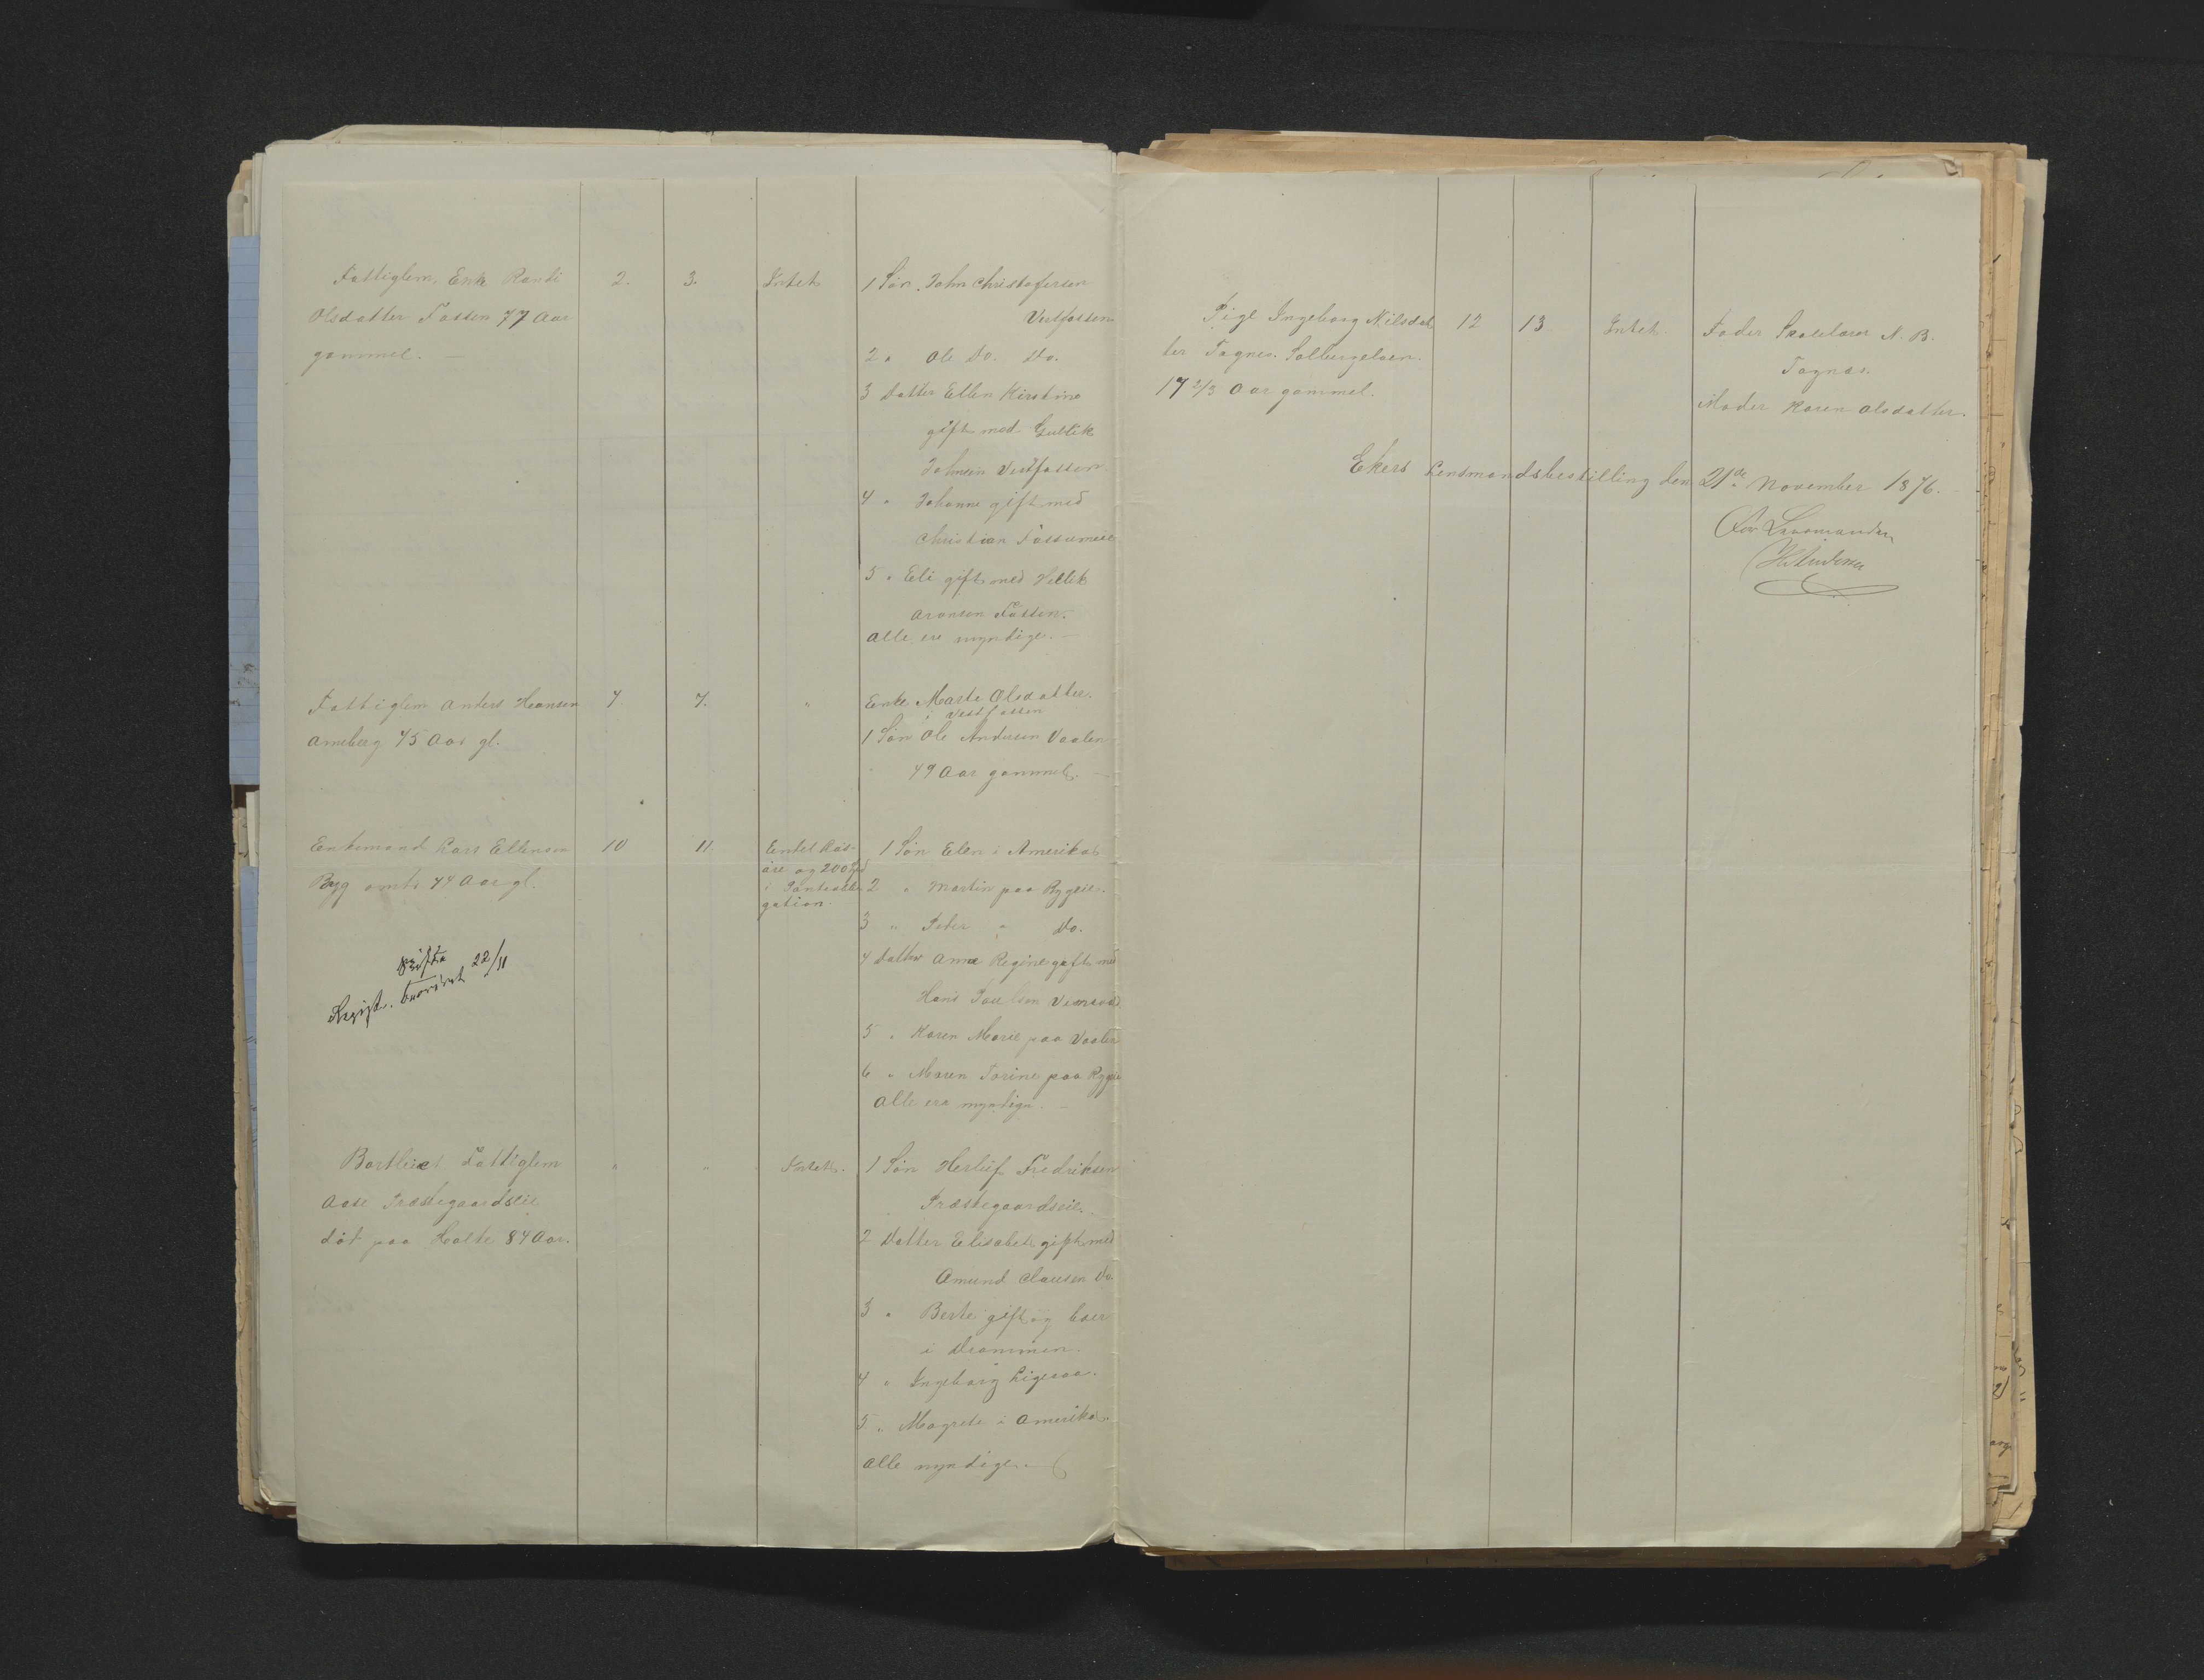 Fattiglem, Enke Randi 2. 3. Intet 1 Søn. John Christofersen
Olsdatter Fossen 77 Aar Vestfossen
gammel. — 2 " Ole Do. Do.
3 Datter Ellen Kirstine
gift med Gullik
Johnsen Vestfossen.
4 " Johanne gift med
Christian
5 " Eli gift med Hellik
Aronsen Fossen.
Alle ere myndige. —
Fattiglem Anders Hansen 7 7. " Enke Marte Olsdatter.
i Vestfossen
Ameberg 75 Aar gl. 1 Søn Ole Andersen Vaalen
49 Aar gammel. —
Enkemand Lars Ellensen 10 11 Endel Løs- 1 Søn Elen i Amerika
øre og 200 Spd
Byg omtr 74 Aar gl. i Pantobli- 2 " Martin paa Rygeie.
gation.
3 " Peder " Do.
4 Datter Anne Regine gift med
Hans Paulsen
5 " Karen Marie paa Vaalen
6 " Maren Torine paa Rygeie
Alle ere myndige. —
Skifte
Registr. beordret 22/11
Bortleiet Fattiglem " " Intet. 1 Søn Herluf Fredriksen
Aase Præstegaardseie Præstegaardseie.
død paa Holte 84 Aar. 2 Datter Elisabeth gift med
Amund Clausen Do.
3 " Berte gift og boer
i Drammen.
4 " Ingeborg Ligesaa.
5 " Magrete i Amerika.
Alle myndige. —
Pige Ingeborg Nilsdat 12 13 Intet. Fader Skolelærer N. B.
ter Fagnes. Solbergelven. Fagnes.
17 2/3 Aar gammel. Moder Karen Olsdatter.
Ekers Lensmandsbestilling den 21de November 1876.
For Lensmanden